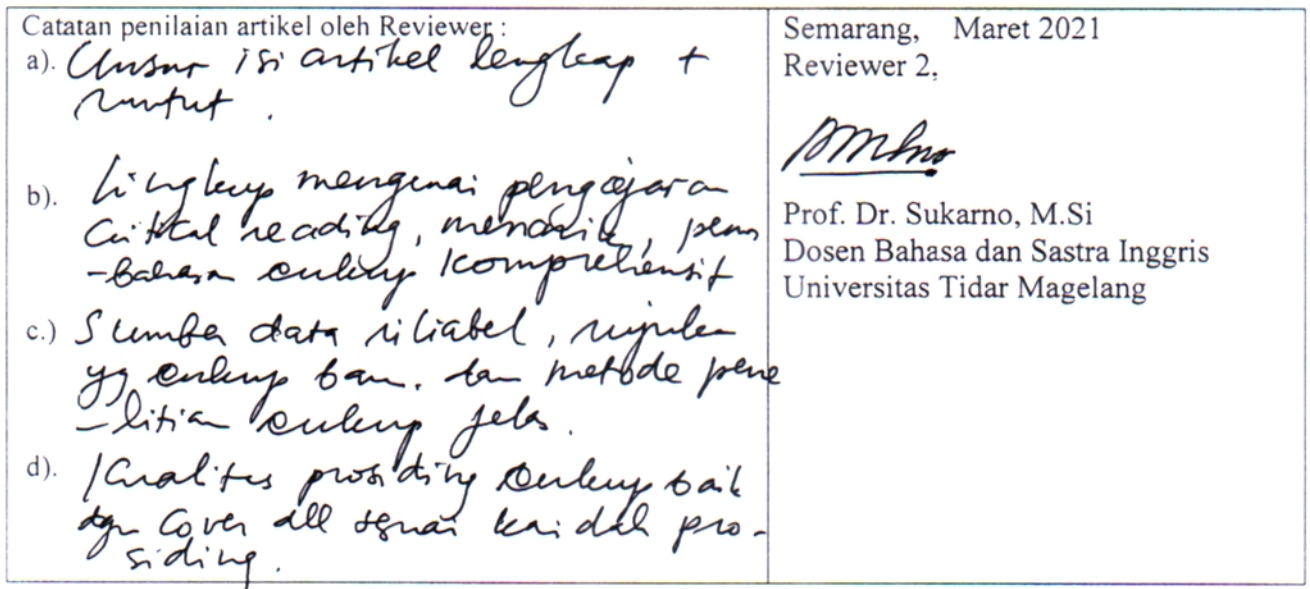 Catatan penilaian artikel oleh Reviewer :
a). Unsur isi artikel lengkap +
runtut .
b). Lingkup mengenai pengajaran
critical reading, menarik, pem
-bahasan cukup komprehensif
c.) Sumber data reliabel, rujukan
yg cukup baru. dan metode pene
-litian cukup jelas.
d). Kualitas prosiding cukup baik
dgn cover dll sesuai kaidah pro-
siding.
Semarang, Maret 2021
Reviewer 2,
Prof. Dr. Sukarno, M.Si
Dosen Bahasa dan Sastra Inggris
Universitas Tidar Magelang